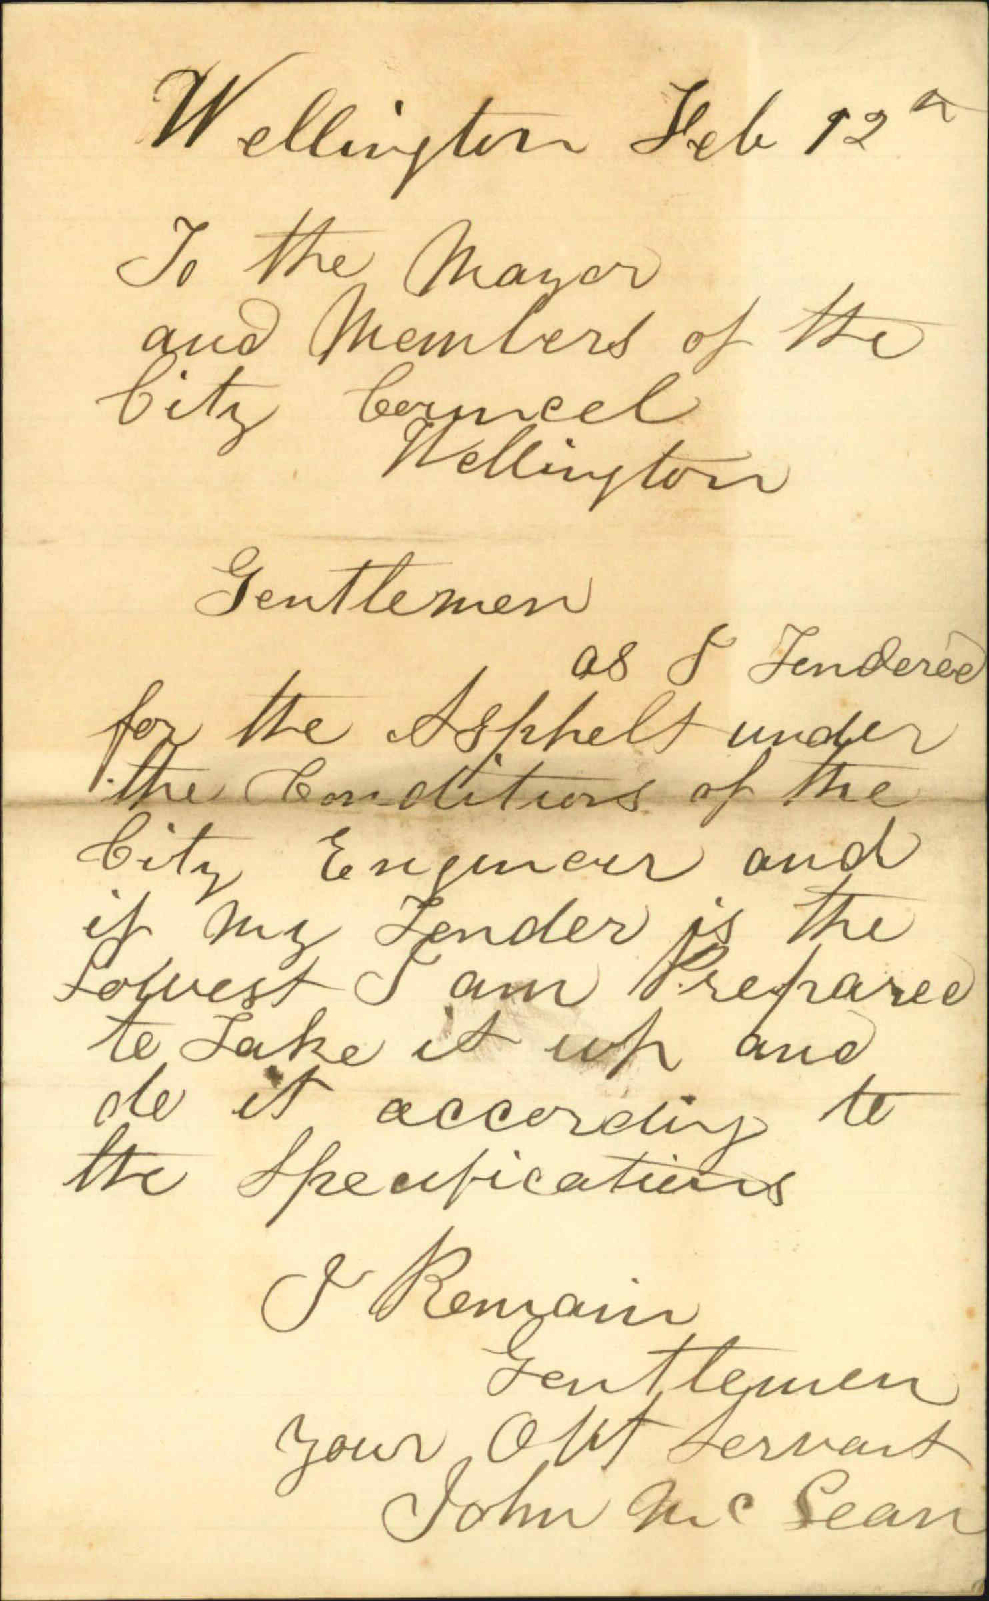 Wellington Feb 12th
To the Mayor
and Members of the
City Councel
Wellington
Gentlemen
as I Tendered
for the Asphelt under
the Conditions of the
City Engineer and
if My Tender is the
Lowest I am Prepared
to Take it up and
do it according to
the Specifications
I Remain
Gentlemen
your Obt Servant
John McLean